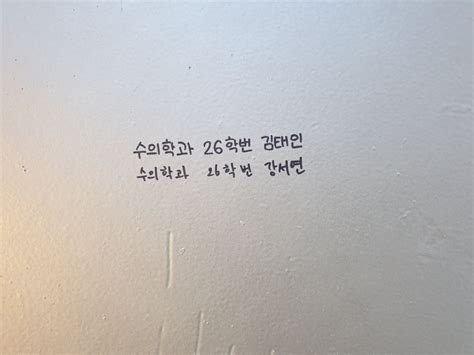 수의학과 26학번 김태인
수의학과 26학번 강서연